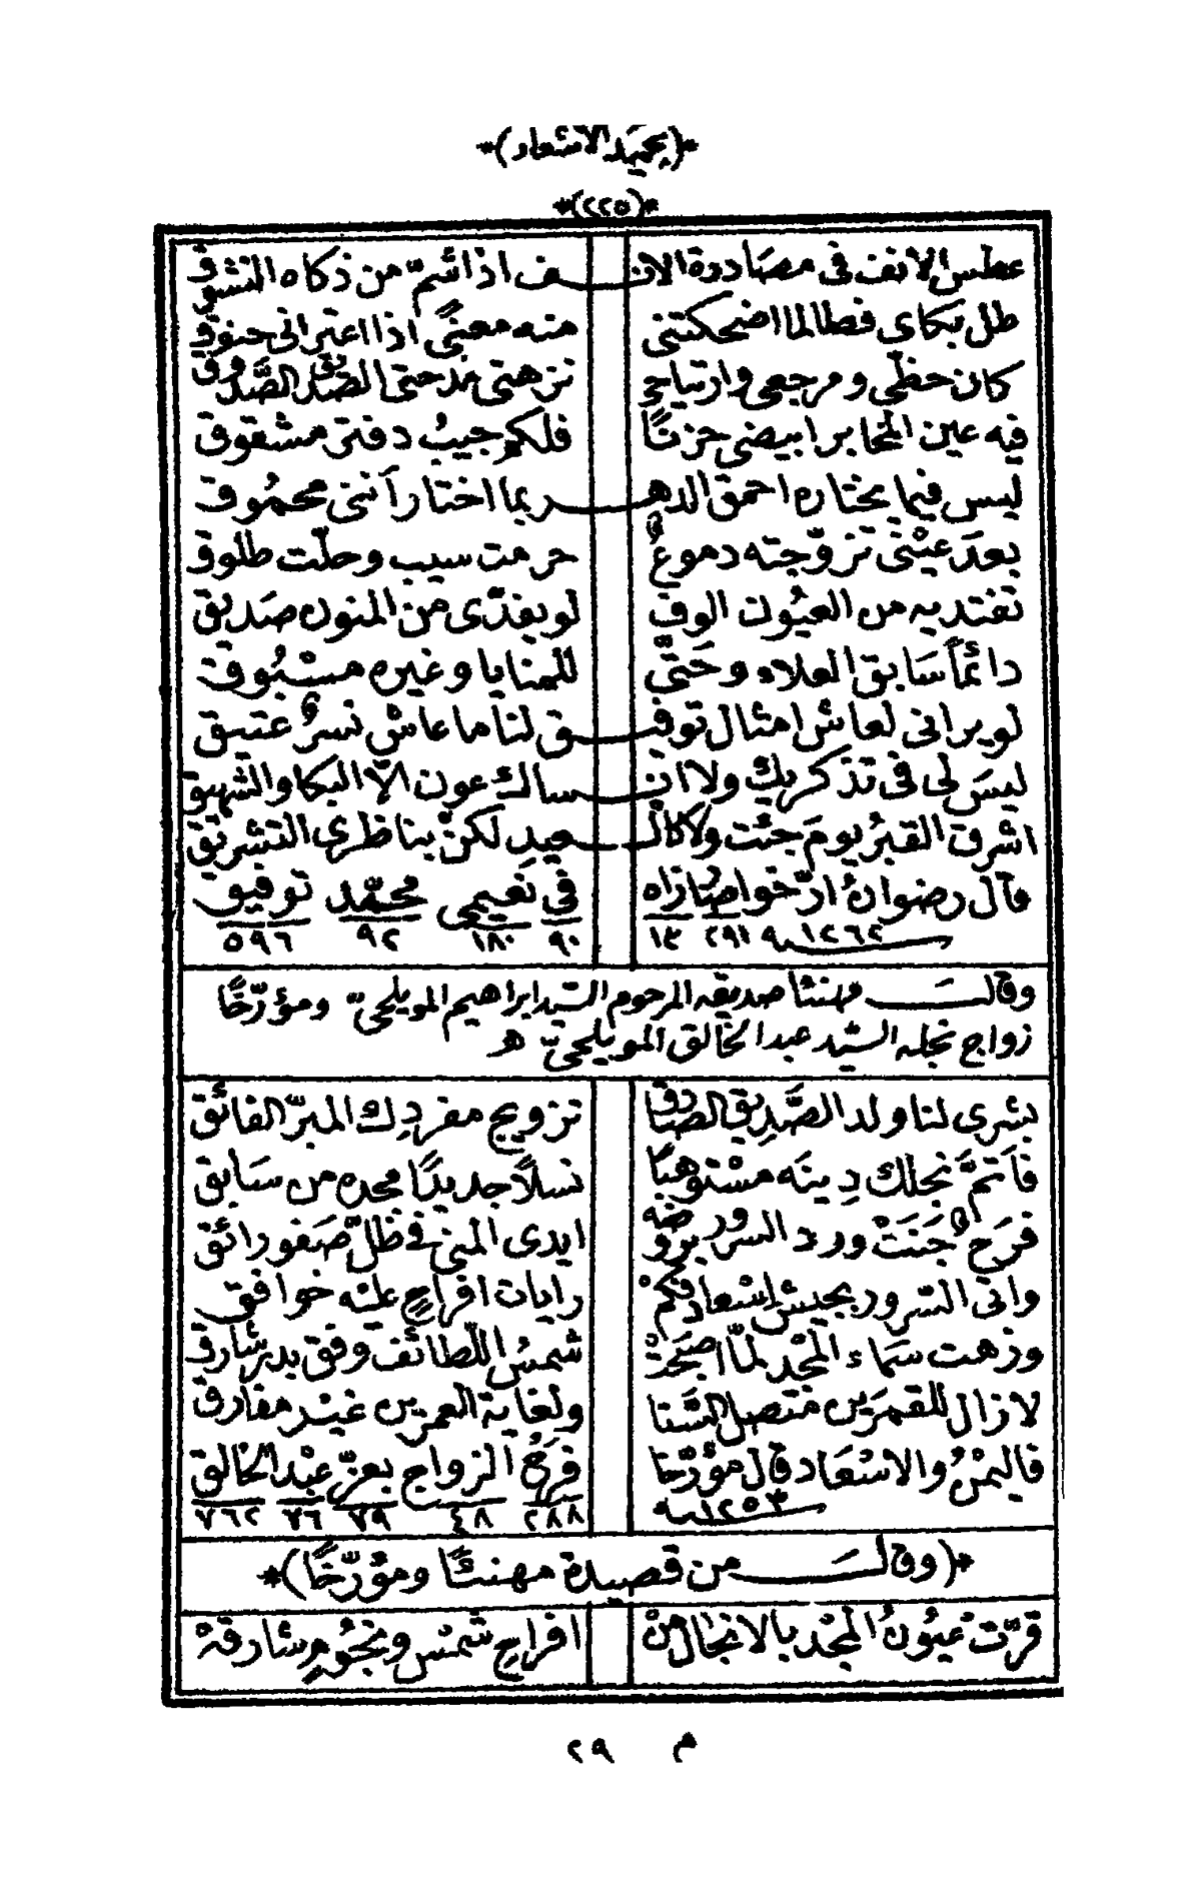 *(بحميد الاشعار)*
*(٢٢٥)*
عطس الانف فى مصادرة الانــف اذا شمّ من ذكاه النشوق
طال بكاى فطالما اضحكتنى منه معنىً اذا اعترانى حنوق
كان حظّى ومرجعى وارتياحى نزهتى مدحتى الصديق الصَّدوق
فيه عين المحابر ابيضى حزنًا فلكم جيبُ دفتر مشقوق
ليس فيما يختاره احمق الدهــر بما اختار أننى محموق
بعدَ عيْنى تزوّجته دموعٌ حرمت سيب وحلّت طلوق
تفتديه من العيُون الوف لو يفدّى من المنون صَديق
دائماً سَابق العلاء وحَتَّى للمنايا وغيره مسْبُوق
لو يرانى لعاش امثال توفيــق لنا ما عاش نسرٌ عتيق
ليسَ لى فى تذكريك ولا انــسالك عون الّا البكا والشهيق
اشرق القبرُ يومَ جئت ولا كالــعيدِ لكنْ بناظرى التشريق
قال رضوانهُ ارّخوا صار زاه فى نعيمى محمّد توفيق
١٢٦٢ ٩ ٢٩١ ١٣ ٩٠ ١٨٠ ٩٢ ٥٩٦
وقالــَـ مهنئا صديقه المرحوم السّيد ابراهيم المويلحىّ ومؤرّخًا
زواج نجله السّيّد عبد الخالق المويلحىّ هـ
بشرى لنا ولد الصَّدِيق الصادق تزويج مفردِك المبرّ الفائق
فأتمَّ نجلك دِينَه مسْتوهبًا نسلًا جديدًا مجده من سَابق
فرَحٌ جَنَتْ ورد السرور بروضه ايدى المنى فى ظلّ صَفو رائق
واتى السّرور بجيش إسْعادٍ لكمْ رايات افراحٍ عليْه خوافق
وزهت سَماء المجْد لمّا اصبَحتْ شمسُ اللّطائف وفق بدر شارق
لا زال للقمرَين متصل السَّنا ولغاية العمرين غيْر مفارق
فاليمْنُ والاسْعَاد قال مؤرّخا فرَحُ الزواج بعزّ عبْد الخالق
١٢٥٣ ٢٨٨ ٤٨ ٧٩ ٧٦ ٧٦٢
*(وقالــَـ من قصيدة مهنئًا ومؤرّخًا)*
قرّت عيُونُ المجْد بالانجَال منْ افراحِ شمسٍ ونجُومٍ شارقهْ
م ٢٩